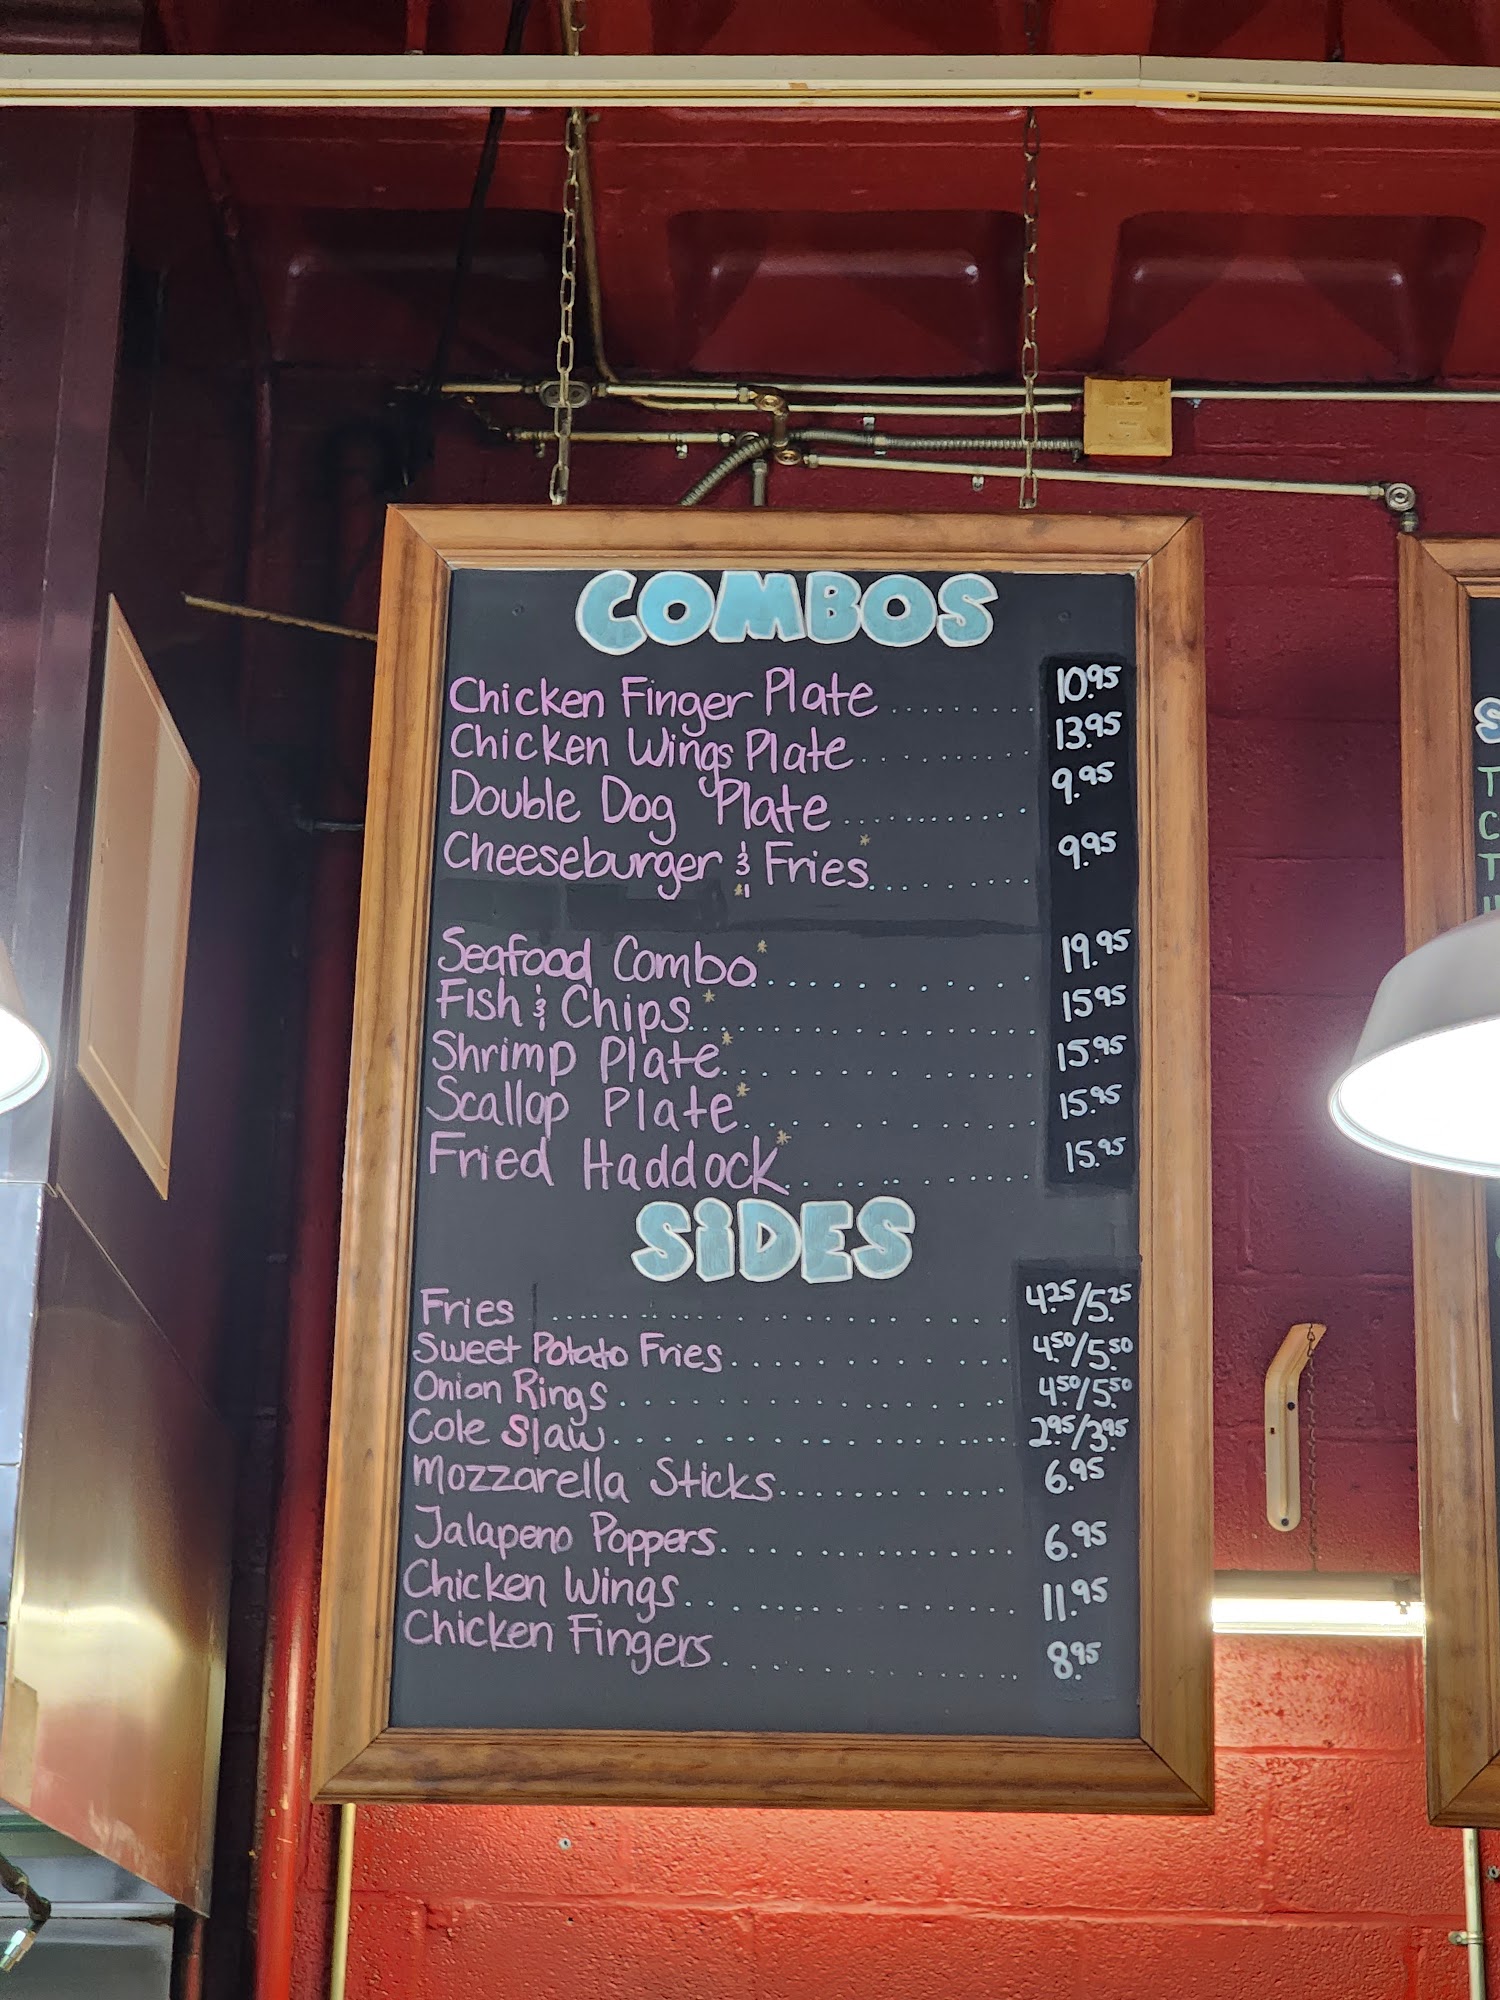 COMBOS
Chicken Finger Plate ......... 10.95
Chicken Wings Plate ......... 13.95
Double Dog Plate ........... 9.95
Cheeseburger & Fries* ........ 9.95
Seafood Combo* ............ 19.95
Fish & Chips* ................ 15.95
Shrimp Plate* .............. 15.95
Scallop Plate* ............. 15.95
Fried Haddock* ............ 15.95
SiDES
Fries .................. 4.25/5.25
Sweet Potato Fries ............. 4.50/5.50
Onion Rings ................. 4.50/5.50
Cole Slaw .................. 2.95/3.95
Mozzarella Sticks ............ 6.95
Jalapeno Poppers ............... 6.95
Chicken Wings ................ 11.95
Chicken Fingers ............... 8.95